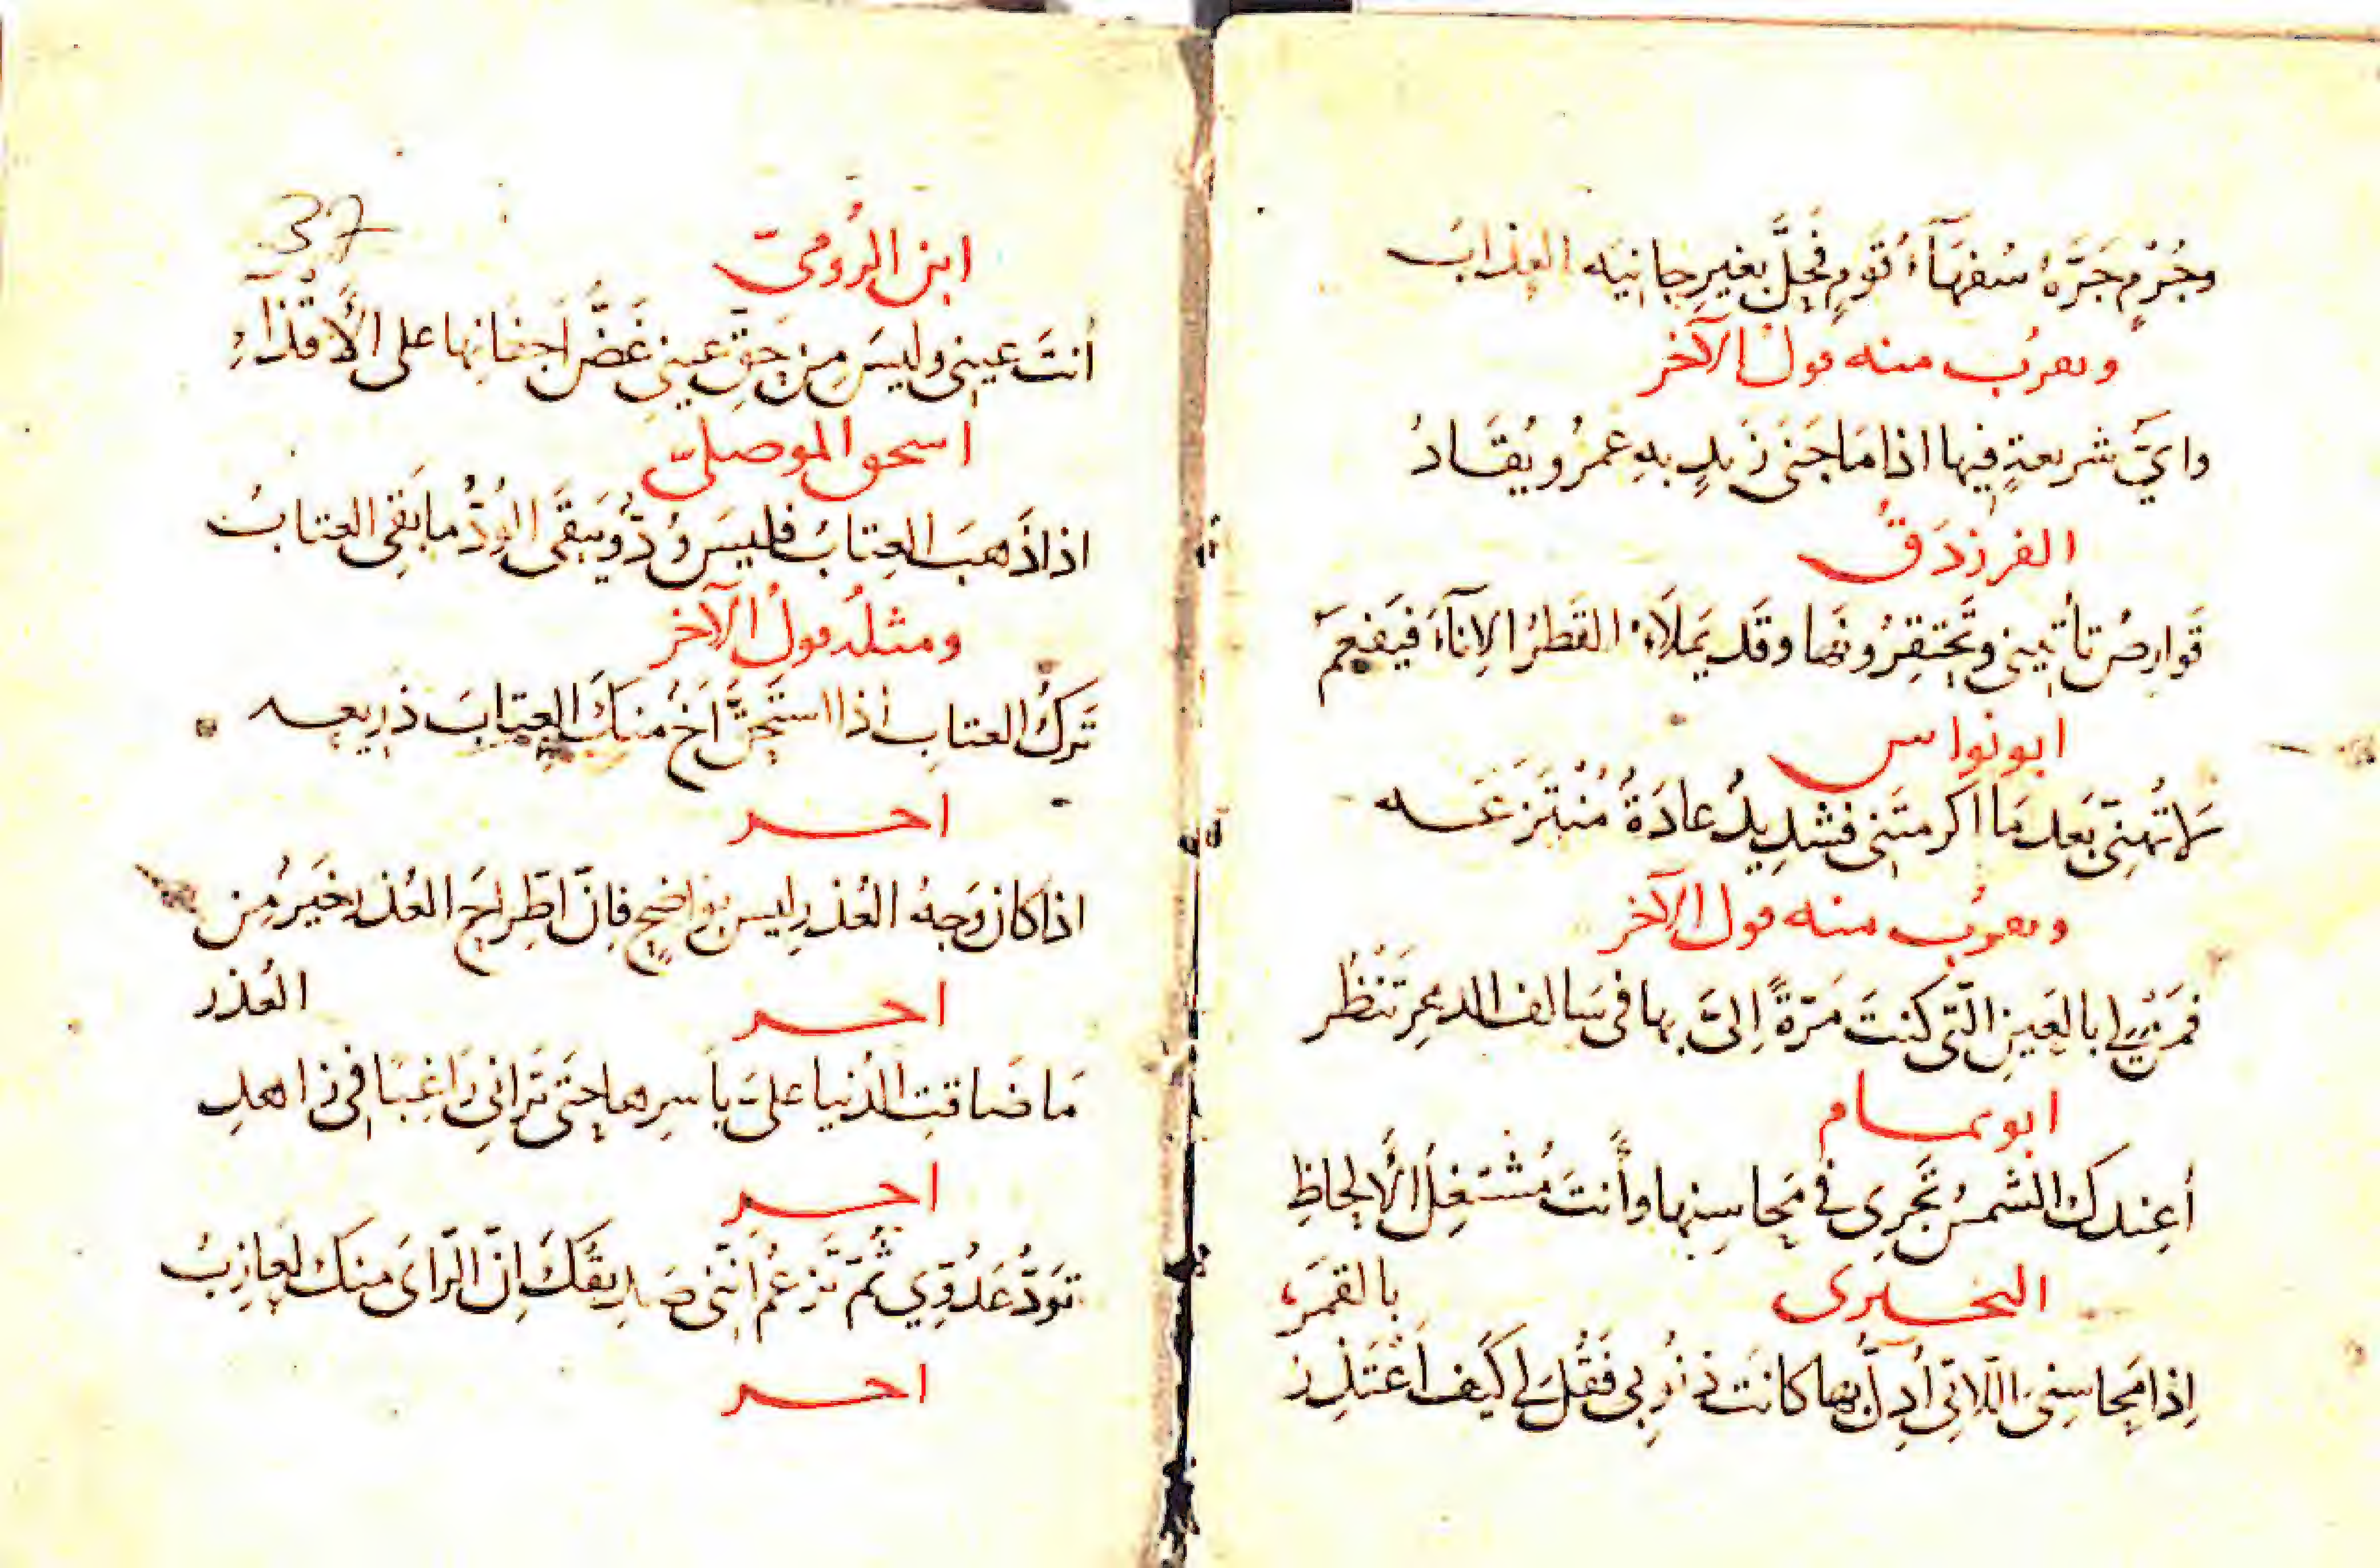 وجُرْمٍ جَرَّهُ سُفَهَآءُ قَومٍ فَحَلَّ بغيرِ جانِيَه العذابُ
ويقربُ منه قولُ الآخر
وايُّ شريعةٍ فيها اذا مَا جَنَى زَيدٍ بهِ عَمرُو يُقَادُ
الفرزدَقُ
قَوارِصُ تأتيني وتَحتَقِرُونَها وقَد يَملَأُ القَطرُ الاِنآءَ فيَفعِمُ
ابو نواس
لا تُهنِّي بَعد مَا اَكرمتَني فشدِيدٌ عادَةٌ مُنْتَزَعَه
ويقربُ منه قول الآخر
فمَن لي بالعَينِ الّتي كنتَ مَرّةً اِليَّ بها في سَالف الدهرِ تَنْظُر
ابو تمام
أعِندك الشمسُ تَجرِي في مَحاسِنِها وأنتَ مُشتَغِلُ الألحاظِ
بالقمَرِ
البحتري
اِذا مَحاسِنِي اللّاتِي أُدِلُّ بها كانَت ذنُوبي فَقُل لي كَيفَ اَعْتَذِرُ
37
ابن الرُوميّ
أنتَ عيني وليسَ مِن حَقِّ عيني غَضُّ اَجفانِها على الأَقذآءِ
اسحق الموصليّ
اذا ذَهبَ العِتابُ فليسَ وُدٌّ ويَبقَى الوُدُّ ما بَقِي العتابُ
ومثلُه قولُ الآخر
تَركُ العتابِ اذا استَحقَّ اَخٌ منكَ العِتابَ ذريعه
اخـر
اذا كان وَجهُ العُذرِ ليس بواضحٍ فاِنّ اطّراحَ العُذرِ خَيرٌ مِن
العُذر
اخـر
مَا ضَاقتِ الدُنيا عليَّ باَسرِها حتّى تَرانِي رَاغِبًا في زاهدِ
اخـر
تَوَدُّ عَدُوِّي ثُمّ تَزعُمُ اَنّني صَديقُكَ اِنّ الرّايَ منكَ لعَازِبُ
اخـر